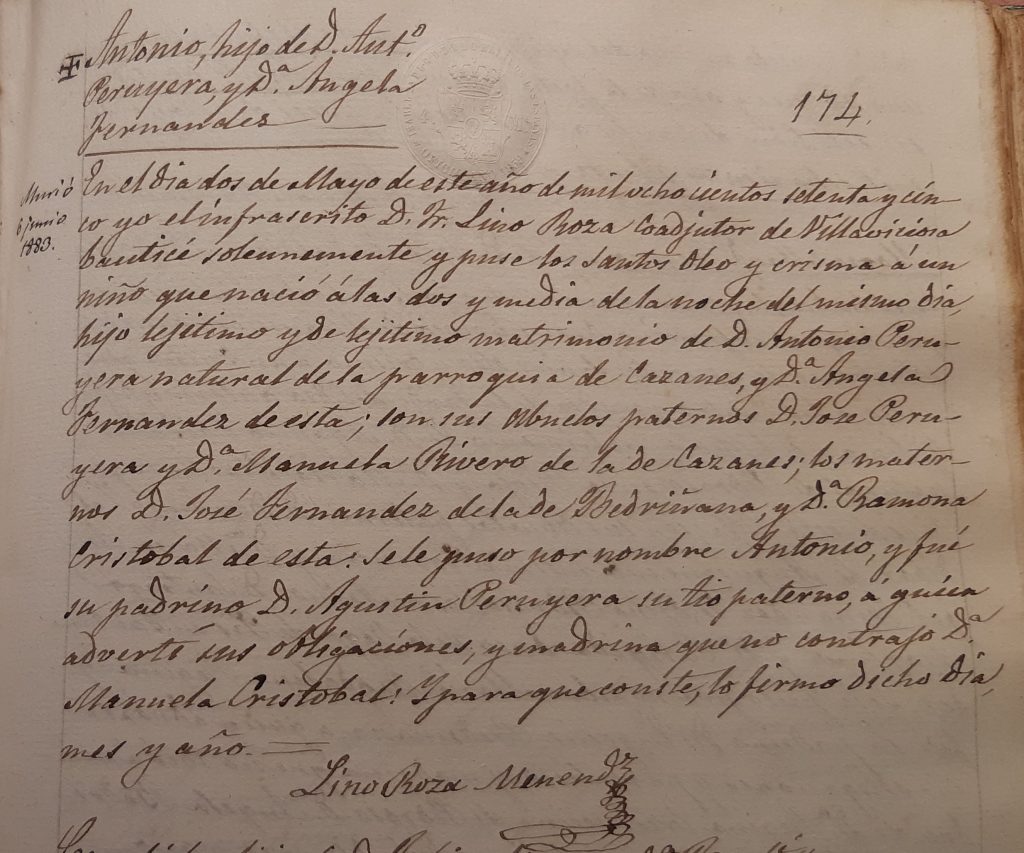 Antonio, hijo de D. Antº
Peruyera, y Dª Angela
Fernandez
174.
Murió
6 junio
1883.
En el dia dos de Mayo de este año de mil ochocientos setenta y cin-
co yo el infrascrito D. Fr. Lino Roza Coadjutor de Villaviciosa
bauticé solennemente y puse los santos oleo y crisma á un
niño que nació á las dos y media de la noche del mismo dia,
hijo lejitimo y de lejitimo matrimonio de D. Antonio Peru-
yera natural de la parroquia de Cazanes, y Dª Angela
Fernandez de esta; son sus abuelos paternos D. Jose Peru-
yera y Dª. Manuela Rivero de la de Cazanes; los mater-
nos D. José Fernandez de la de Bedriñana, y Dª Ramona
Cristobal de esta: Se le puso por nombre Antonio, y fué
su padrino D. Agustin Peruyera su tio paterno, á quien
advertí sus obligaciones, y madrina que no contrajo Dª
Manuela Cristobal: Y para que conste, lo firmo dicho dia,
mes y año.
Lino Roza Menendz